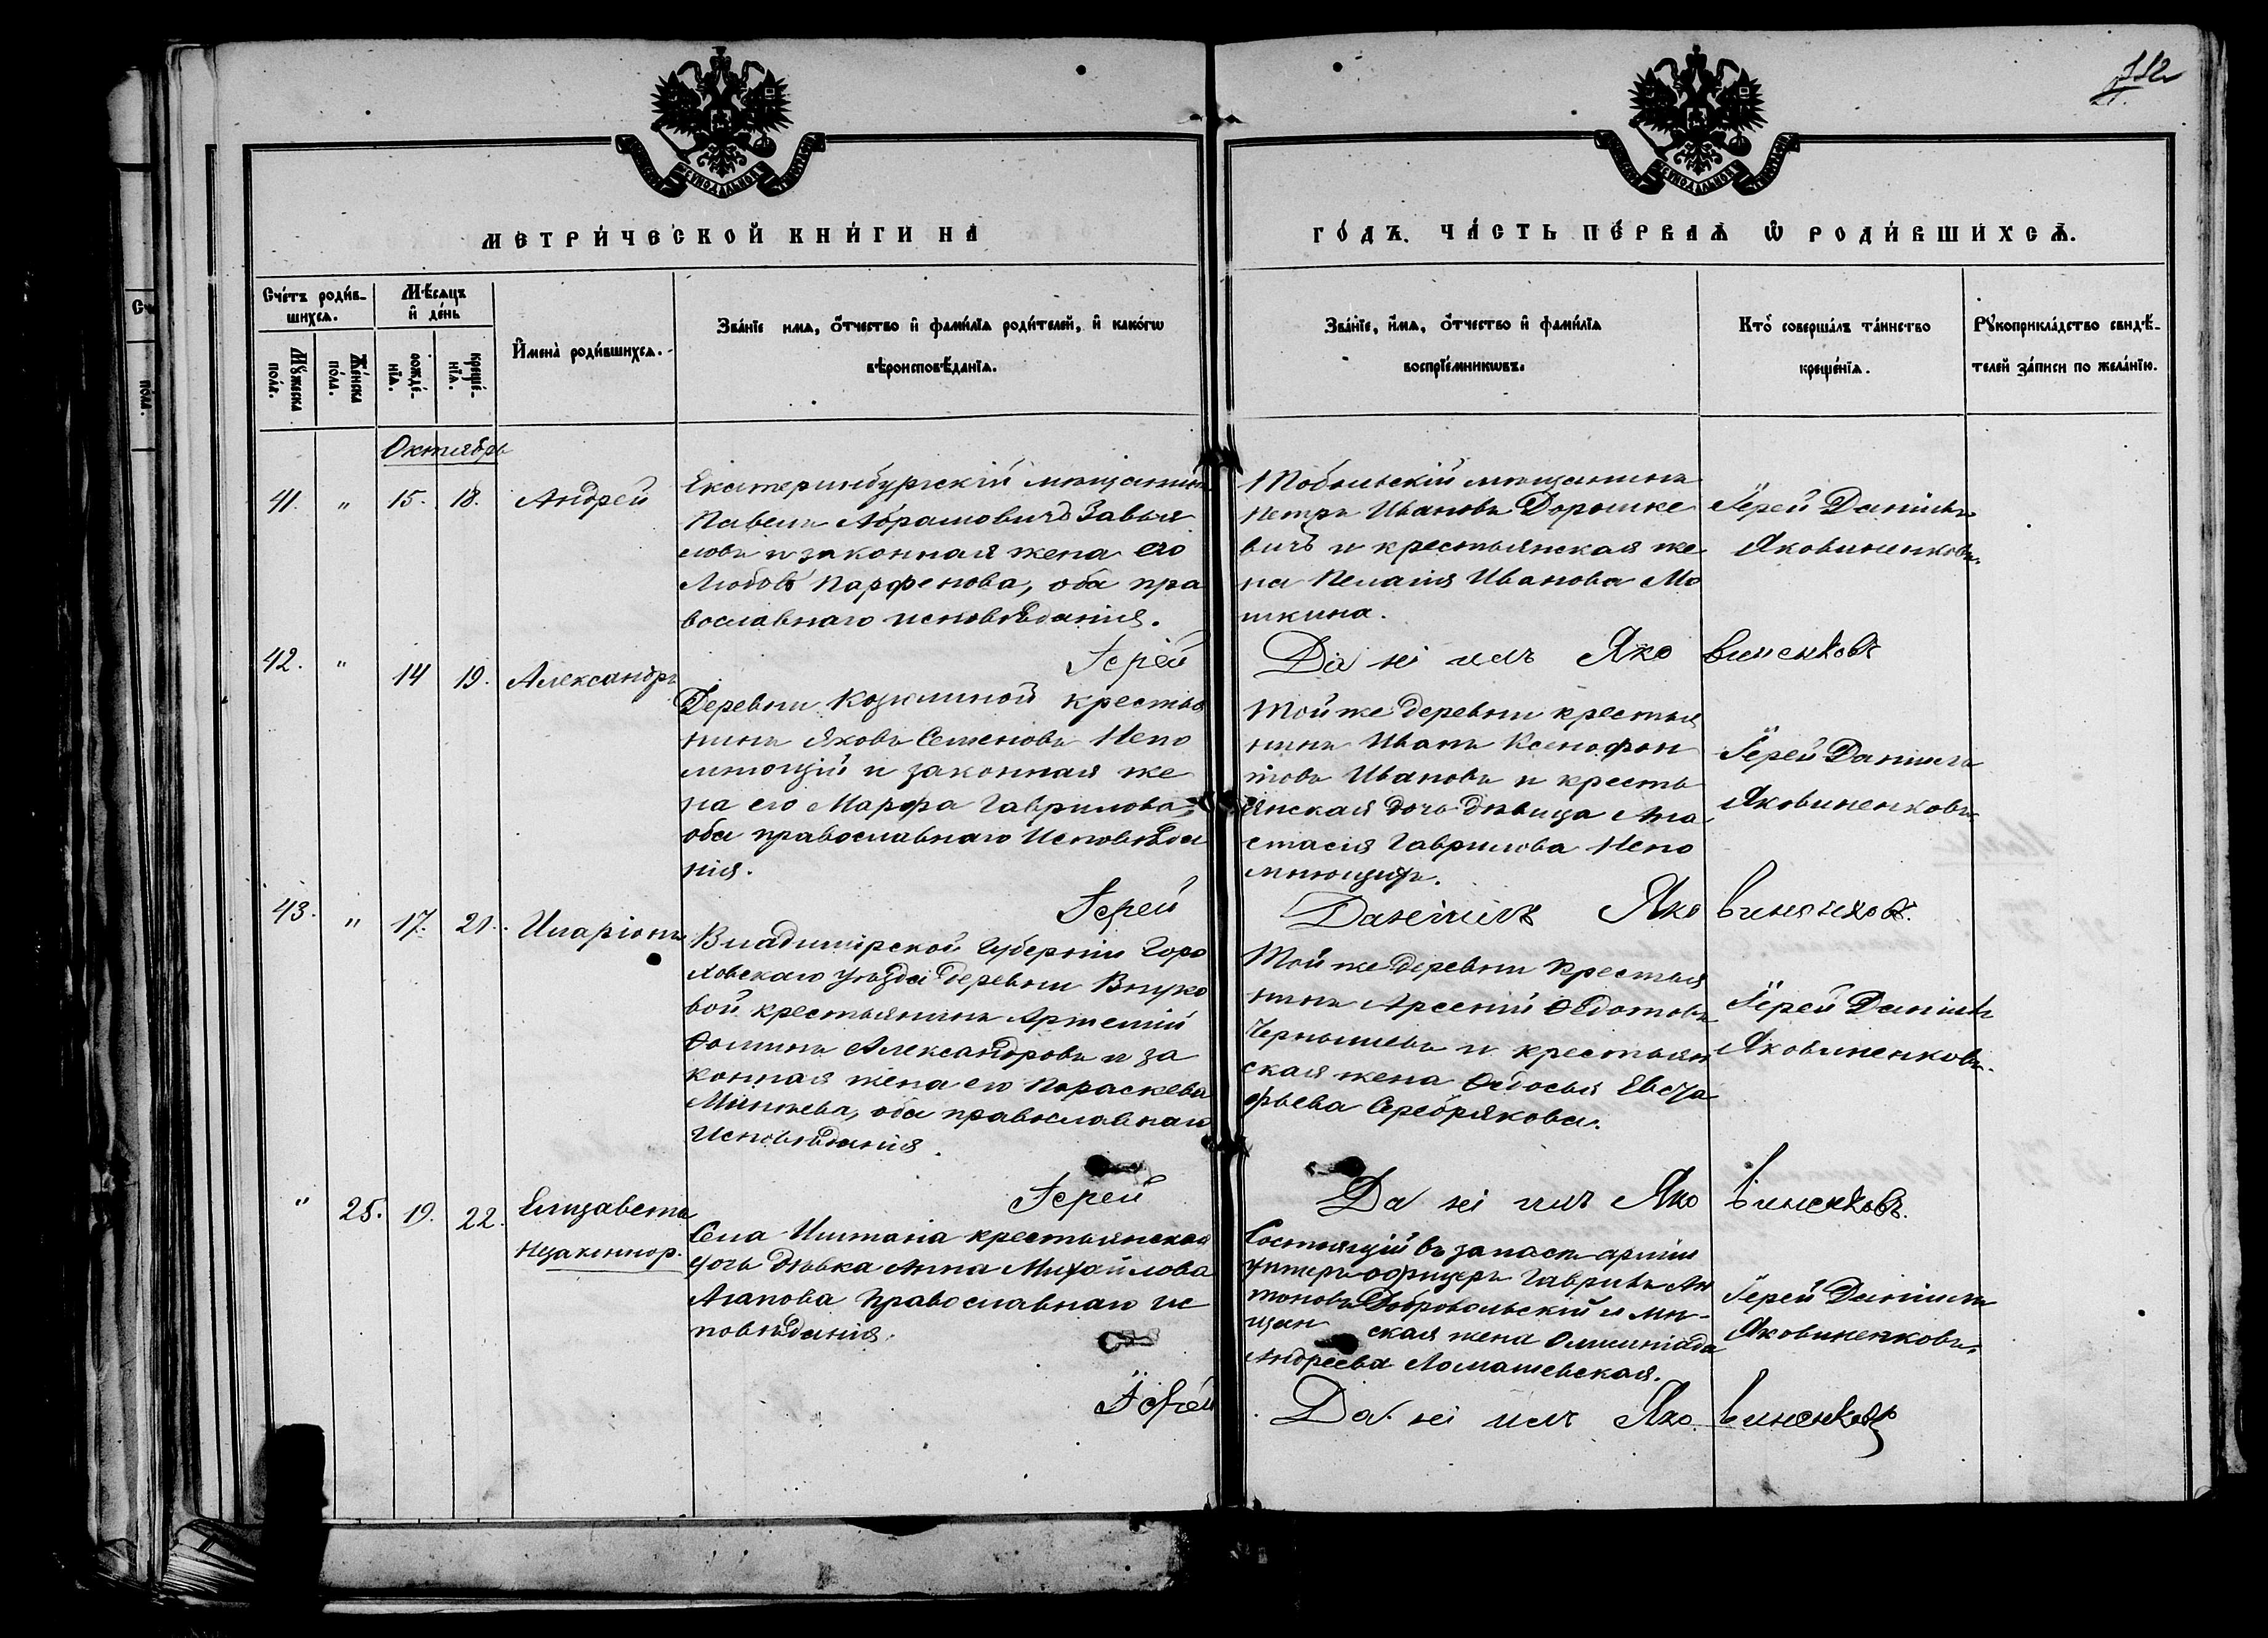 112
МЕТРИЧЕСКОЙ КНИГИ НА
ГОДЪ. ЧАСТЬ ПЕРВАЯ Ѡ РОДИВШИХСЯ.
Счетъ родив-
шихся.
Мужеска
пола.
Женска
пола.
Мѣсяцъ
и день
рожде-
нія.
креще-
нія.
Имена родившихся.
Званіе имя, отчество и фамилія родителей, и какогѡ
вѣроисповѣданія.
Званіе, имя, отчество и фамилія
воспріемникѡвъ.
Кто совершалъ таинство
крещенія.
Рукоприкладство свидѣ-
телей записи по желанію.
Октябрь
41. " 15. 18. Андрей
Екатеринбургскій мѣщанинъ
Павелъ Абрамовичъ Завья
ловъ и законная жена его
Любовь Парфенова, оба пра
вославнаго исповѣданія.
Тобольскій мѣщанинъ
Петръ Ивановъ Дорошке
вичъ и крестьянская же
на Пелагія Иванова Мо
шкина.
Іерей Даніилъ
Яковиненковъ.
Іерей Даніилъ Яковиненковъ
42. " 14 19. Александръ
Деревни Козлиной крестья
нинъ Яковъ Семеновъ Непо
мнющій и законная же
на его Марфа Гаврилова,
оба православнаго Исповѣда
нія.
Той же деревни крестья
нинъ Иванъ Ксенофон
товъ Ивановъ и кресть
янская дочь дѣвица Ана
стасія Гаврилова Непо
мнющихъ.
Іерей Даніилъ
Яковиненковъ
Іерей Даніилъ Яковиненковъ.
43. " 17. 21. Иларіонъ
Владимірской Губерніи Горо
ховскаго уѣзда деревни
вой крестьянинъ Артемій
Ѳоминъ Александровъ и за
конная жена его Параскева
оба православнаго
Исповѣданія.
Той же деревни Крестья
нинъ Арсеній Ѳедотовъ
Чернышевъ и крестьян
ская жена Ѳедосья Евста
фьева Серебрякова.
Іерей Даніилъ
Яковиненковъ.
Іерей Даніилъ Яковиненковъ.
" 25. 19. 22. Елизавета
Незаконнор.
Села Иштана крестьянская
дочь дѣвка Анна Михайлова
Агапова Православнаго ис
повѣданія.
Состоящій въ запасѣ арміи
унтеръ-офицеръ Гавріилъ Ан
тоновъ Добровольскій и мѣ-
щанская жена Олимпіада
Андреева Ломашевская.
Іерей Даніилъ
Яковиненковъ.
Іерей Даніилъ Яковиненковъ